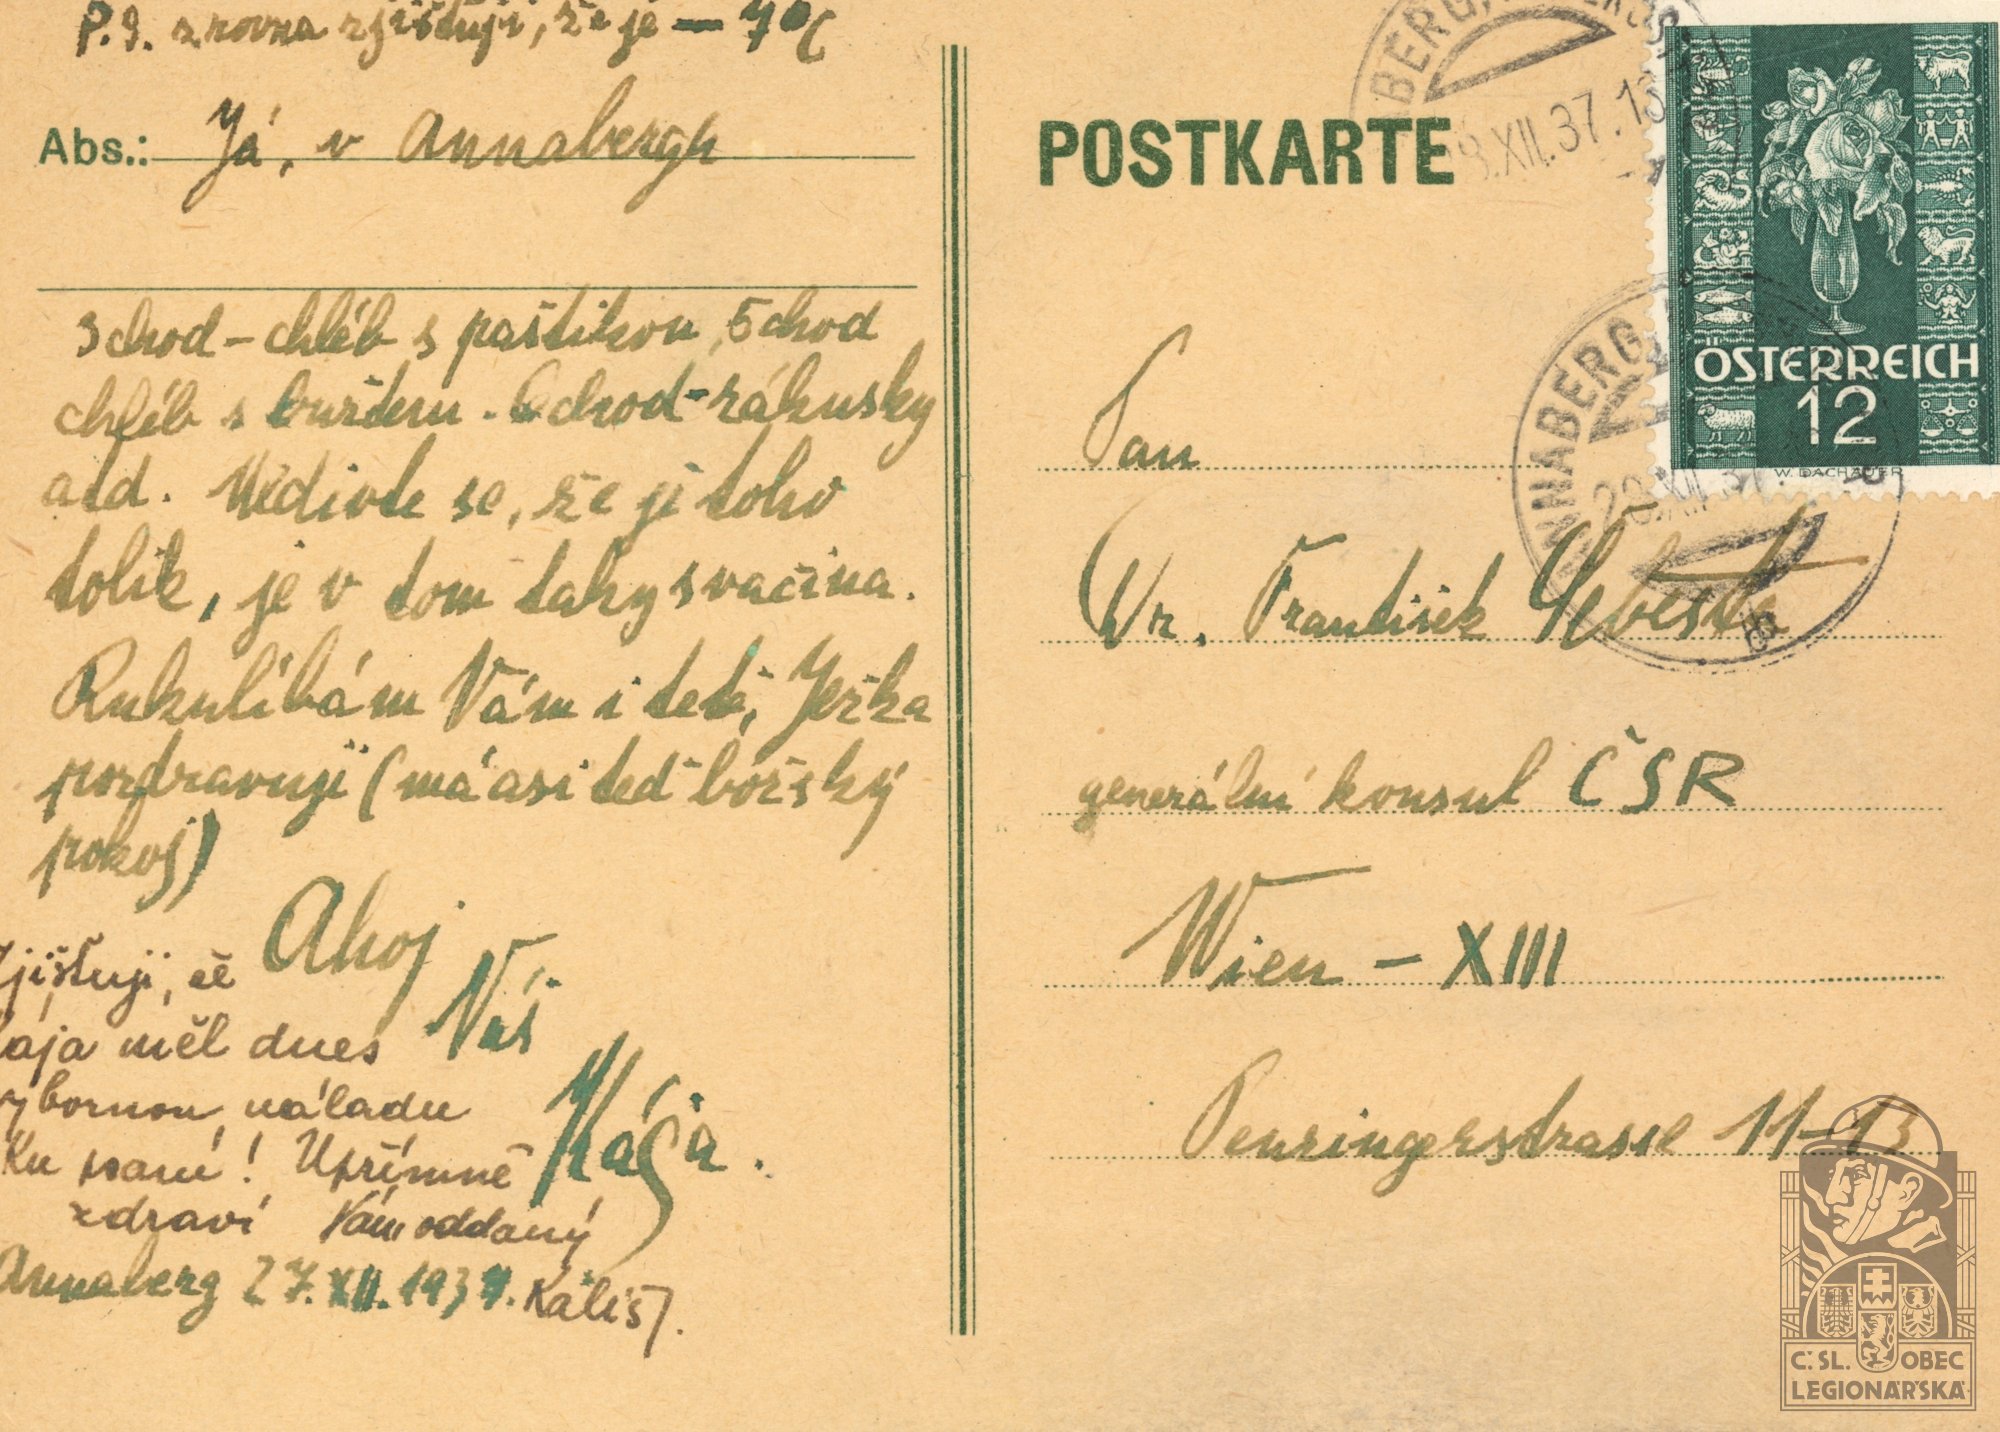 P.S. zrovna zjišťuji, že je – 7°C
Abs.: Já, v Annabergh
3 chod – chléb s paštikou, 5 chod
chléb s buřtem. 6 chod – zákusky
atd. Nedivte se, že je toho
tolik, je v tom taky svačina.
Rukulíbám Vám i tetě, Ježka
pozdravuji (má asi teď božský
pokoj)
Ahoj
Váš
Kája.
Zjišťuji, že
Kája měl dnes
výbornou náladu
Ku psaní! Upřímně
zdraví Vám oddaný
Annaberg 27. XII. 1937. Káliš J.
POSTKARTE
ANNABERG
XII. 37
ÖSTERREICH
12
W. DACHAUER
ANNABERG
28. XII. 37
Pan
Dr. František Šebesta
generální konsul ČSR
Wien – XIII
Penzingerstrasse 11–13
Č. SL. OBEC
LEGIONÁŘSKÁ